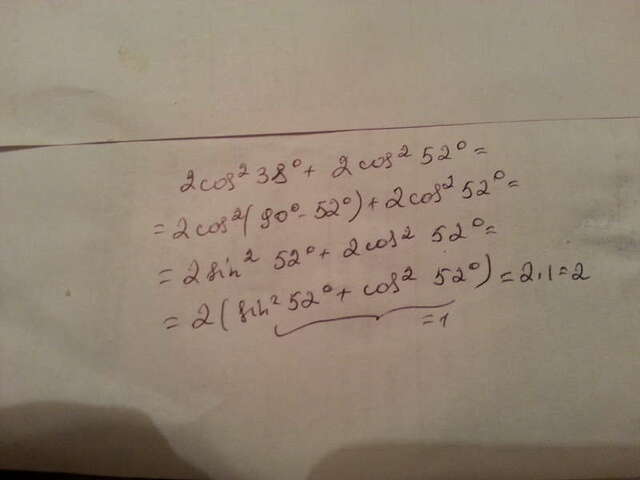 2cos² 38° + 2cos² 52° =
= 2cos²(90° - 52°) + 2cos² 52° =
= 2sin² 52° + 2cos² 52° =
= 2(sin² 52° + cos² 52°) = 2·1 = 2
= 1